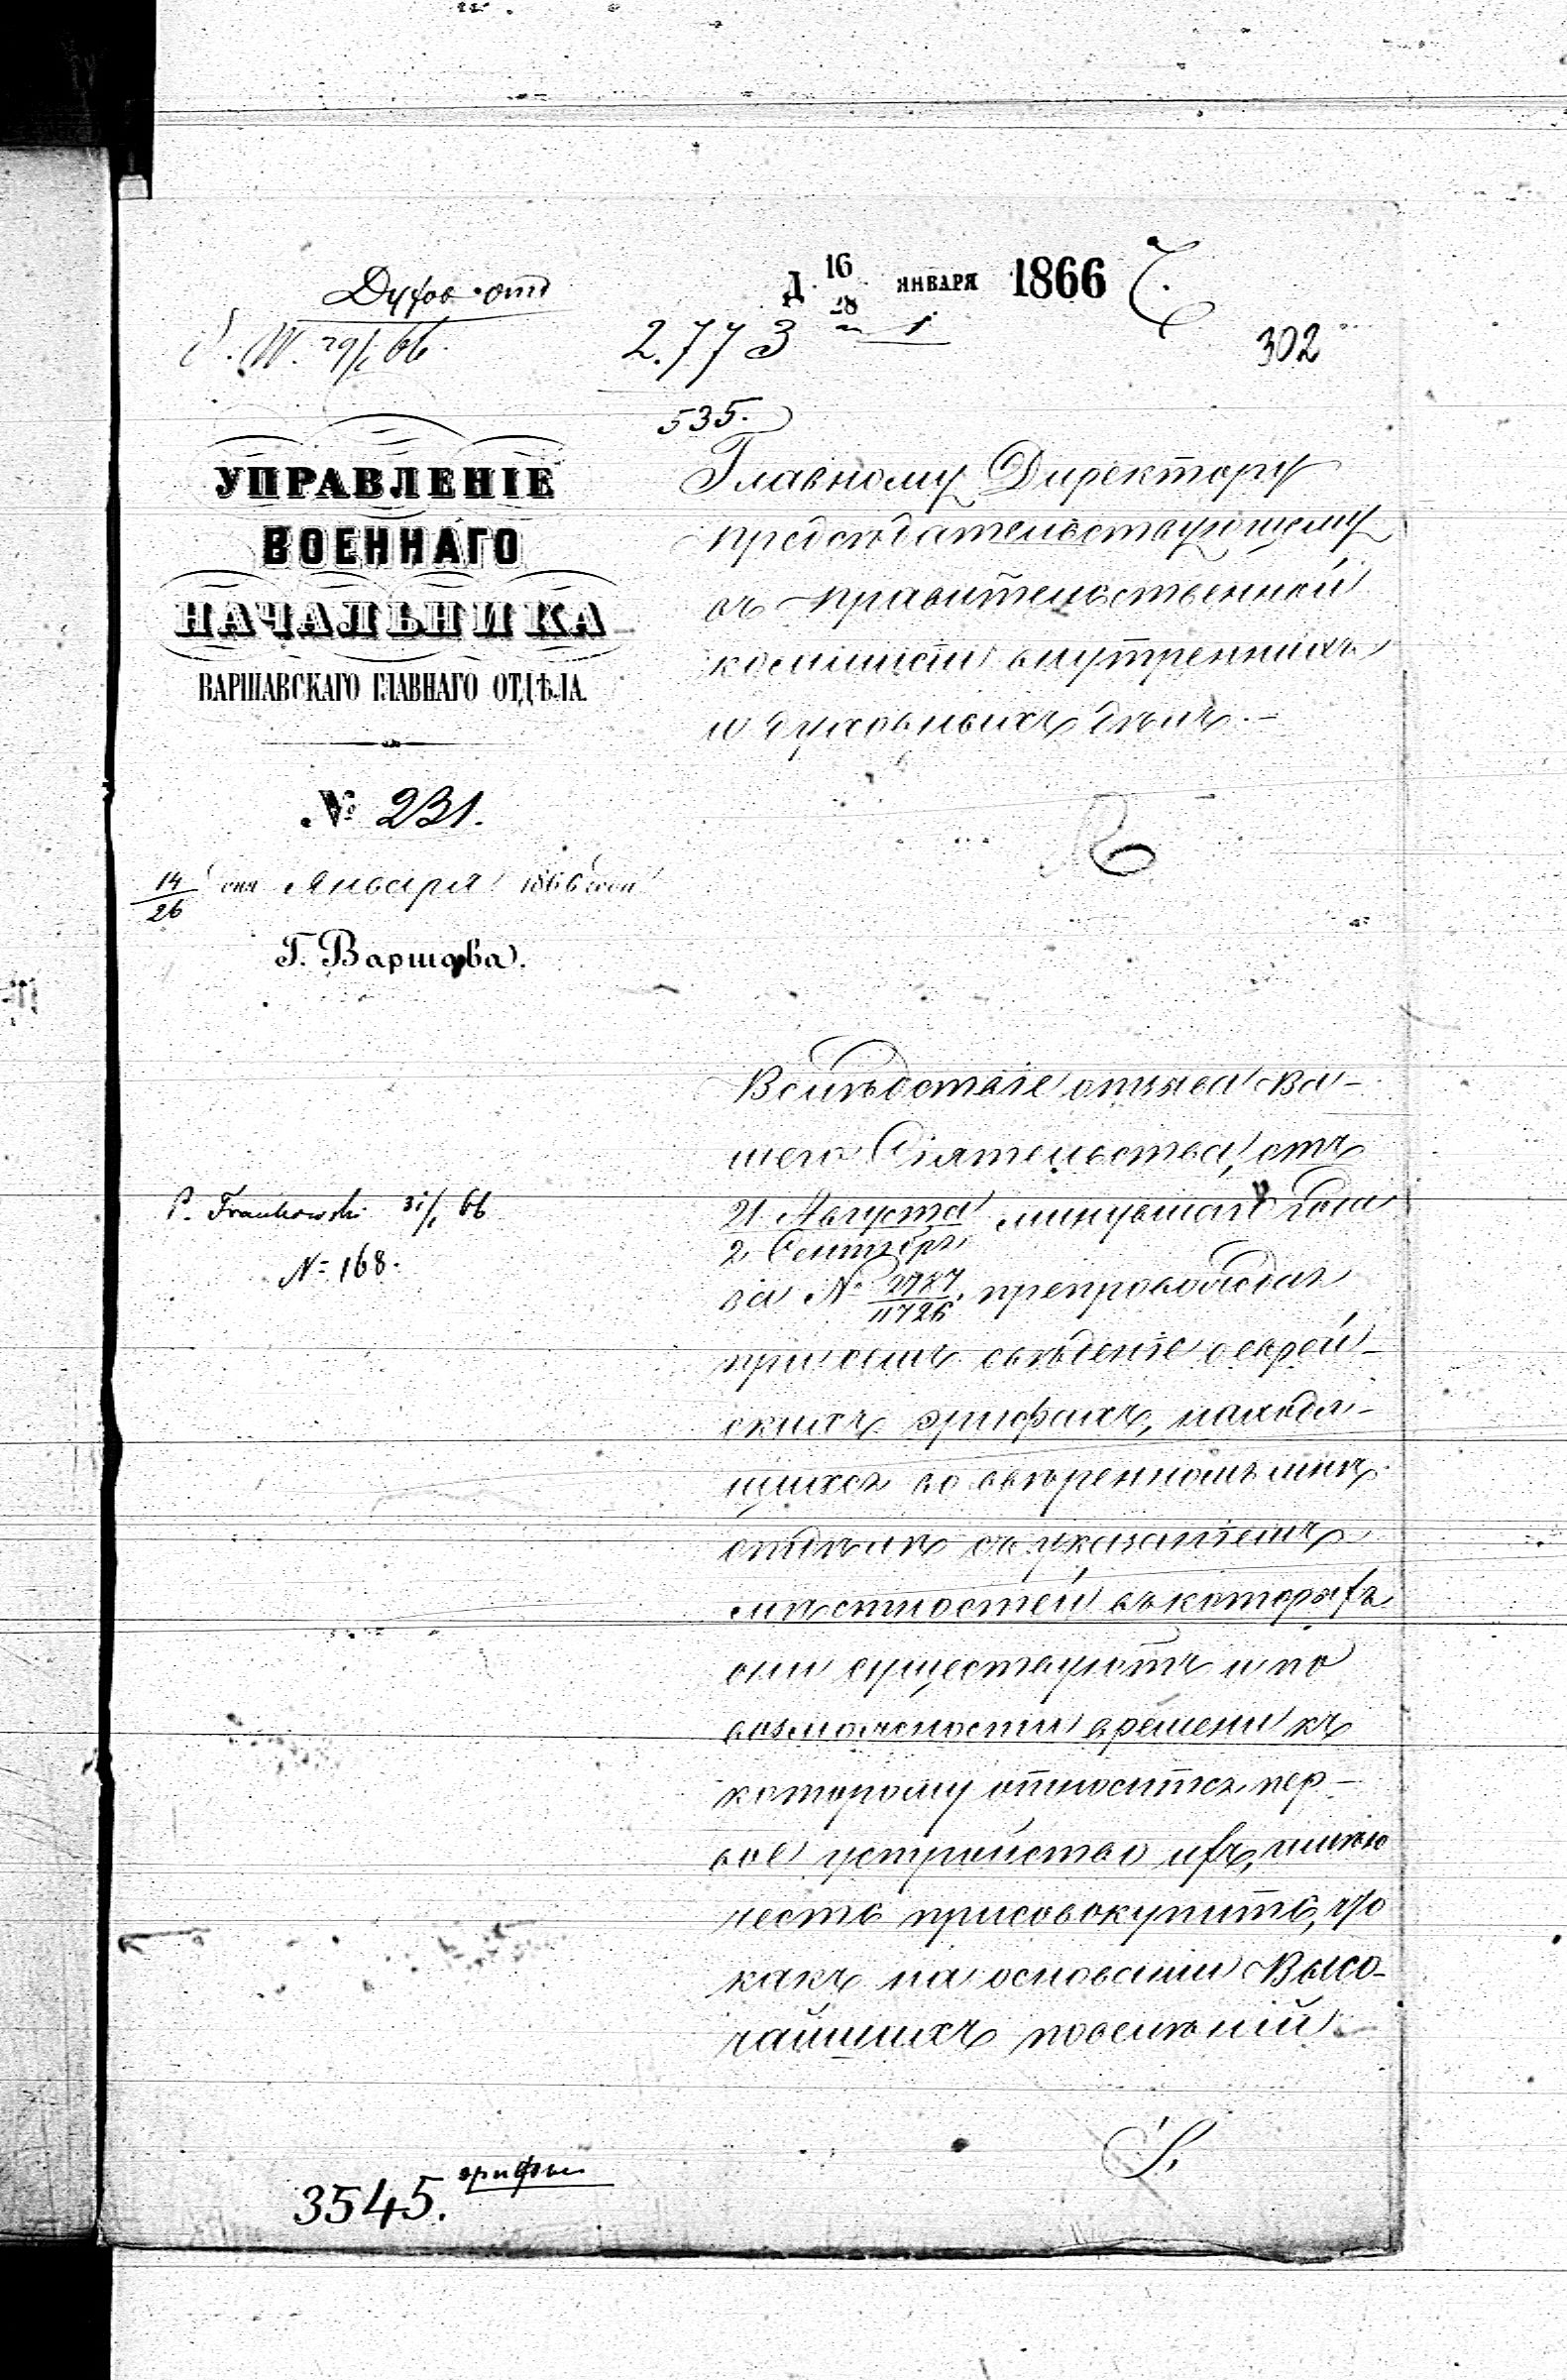 Духов. отд
W. 29/1 66.
Д. 16/28 ЯНВАРЯ 1866
2.773
1
302
535.
УПРАВЛЕНІЕ
ВОЕННАГО
НАЧАЛЬНИКА
ВАРШАВСКАГО ГЛАВНАГО ОТДѢЛА.
№ 231.
14/26 дня Января 1866 года
Г. Варшава.
P. Frankowski 31/1 66
N: 168.
Главному Директору
предсѣдательствующему
въ правительственной
коммисіи внутреннихъ
и духовныхъ дѣлъ.—
Вслѣдствіе отзыва Ва-
шего Сіятельства, отъ
21 Августа/2 Сентября минувшаго года
за № 2787/11726, препровождая
при семъ свѣденіе о еврей-
скихъ эрифахъ, находя-
щихся во ввѣренномъ мнѣ
отдѣлѣ съ указаніемъ
мѣстностей въ которыхъ
они существуютъ и по
возможности времени къ
которому относится пер-
вое устройство ихъ, имѣю
честь присовокупить, что
какъ на основаніи Высо-
чайшихъ повелѣній
3545. эрифы